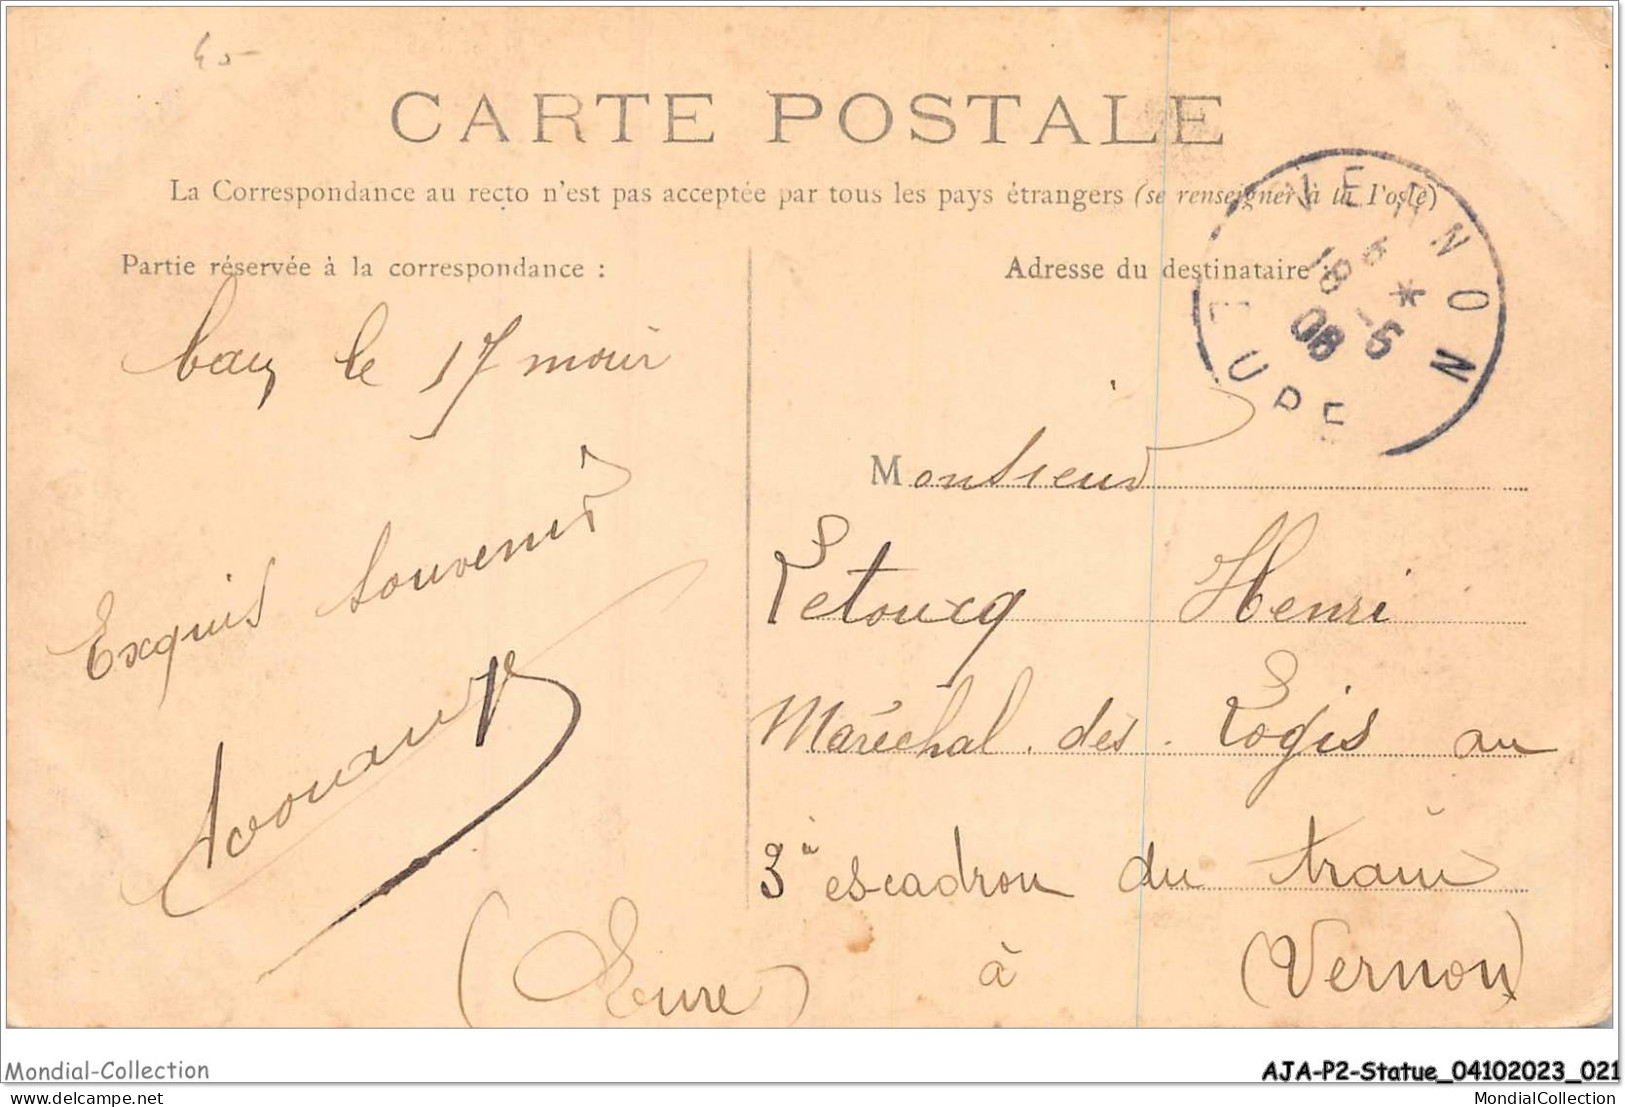 CARTE POSTALE
La Correspondance au recto n'est pas acceptée par tous les pays étrangers (se renseigner à la Poste)
Partie réservée à la correspondance :
Adresse du destinataire
VERNON
18 - 5
08
EURE
le 17
Exquis souvenir
Monsieur
Letourcq Henri
Maréchal des Logis au
3e escadron du train
à (Vernon)
(Eure)
Mondial-Collection
AJA-P2-Statue_04102023_021
mc123
MondialCollection